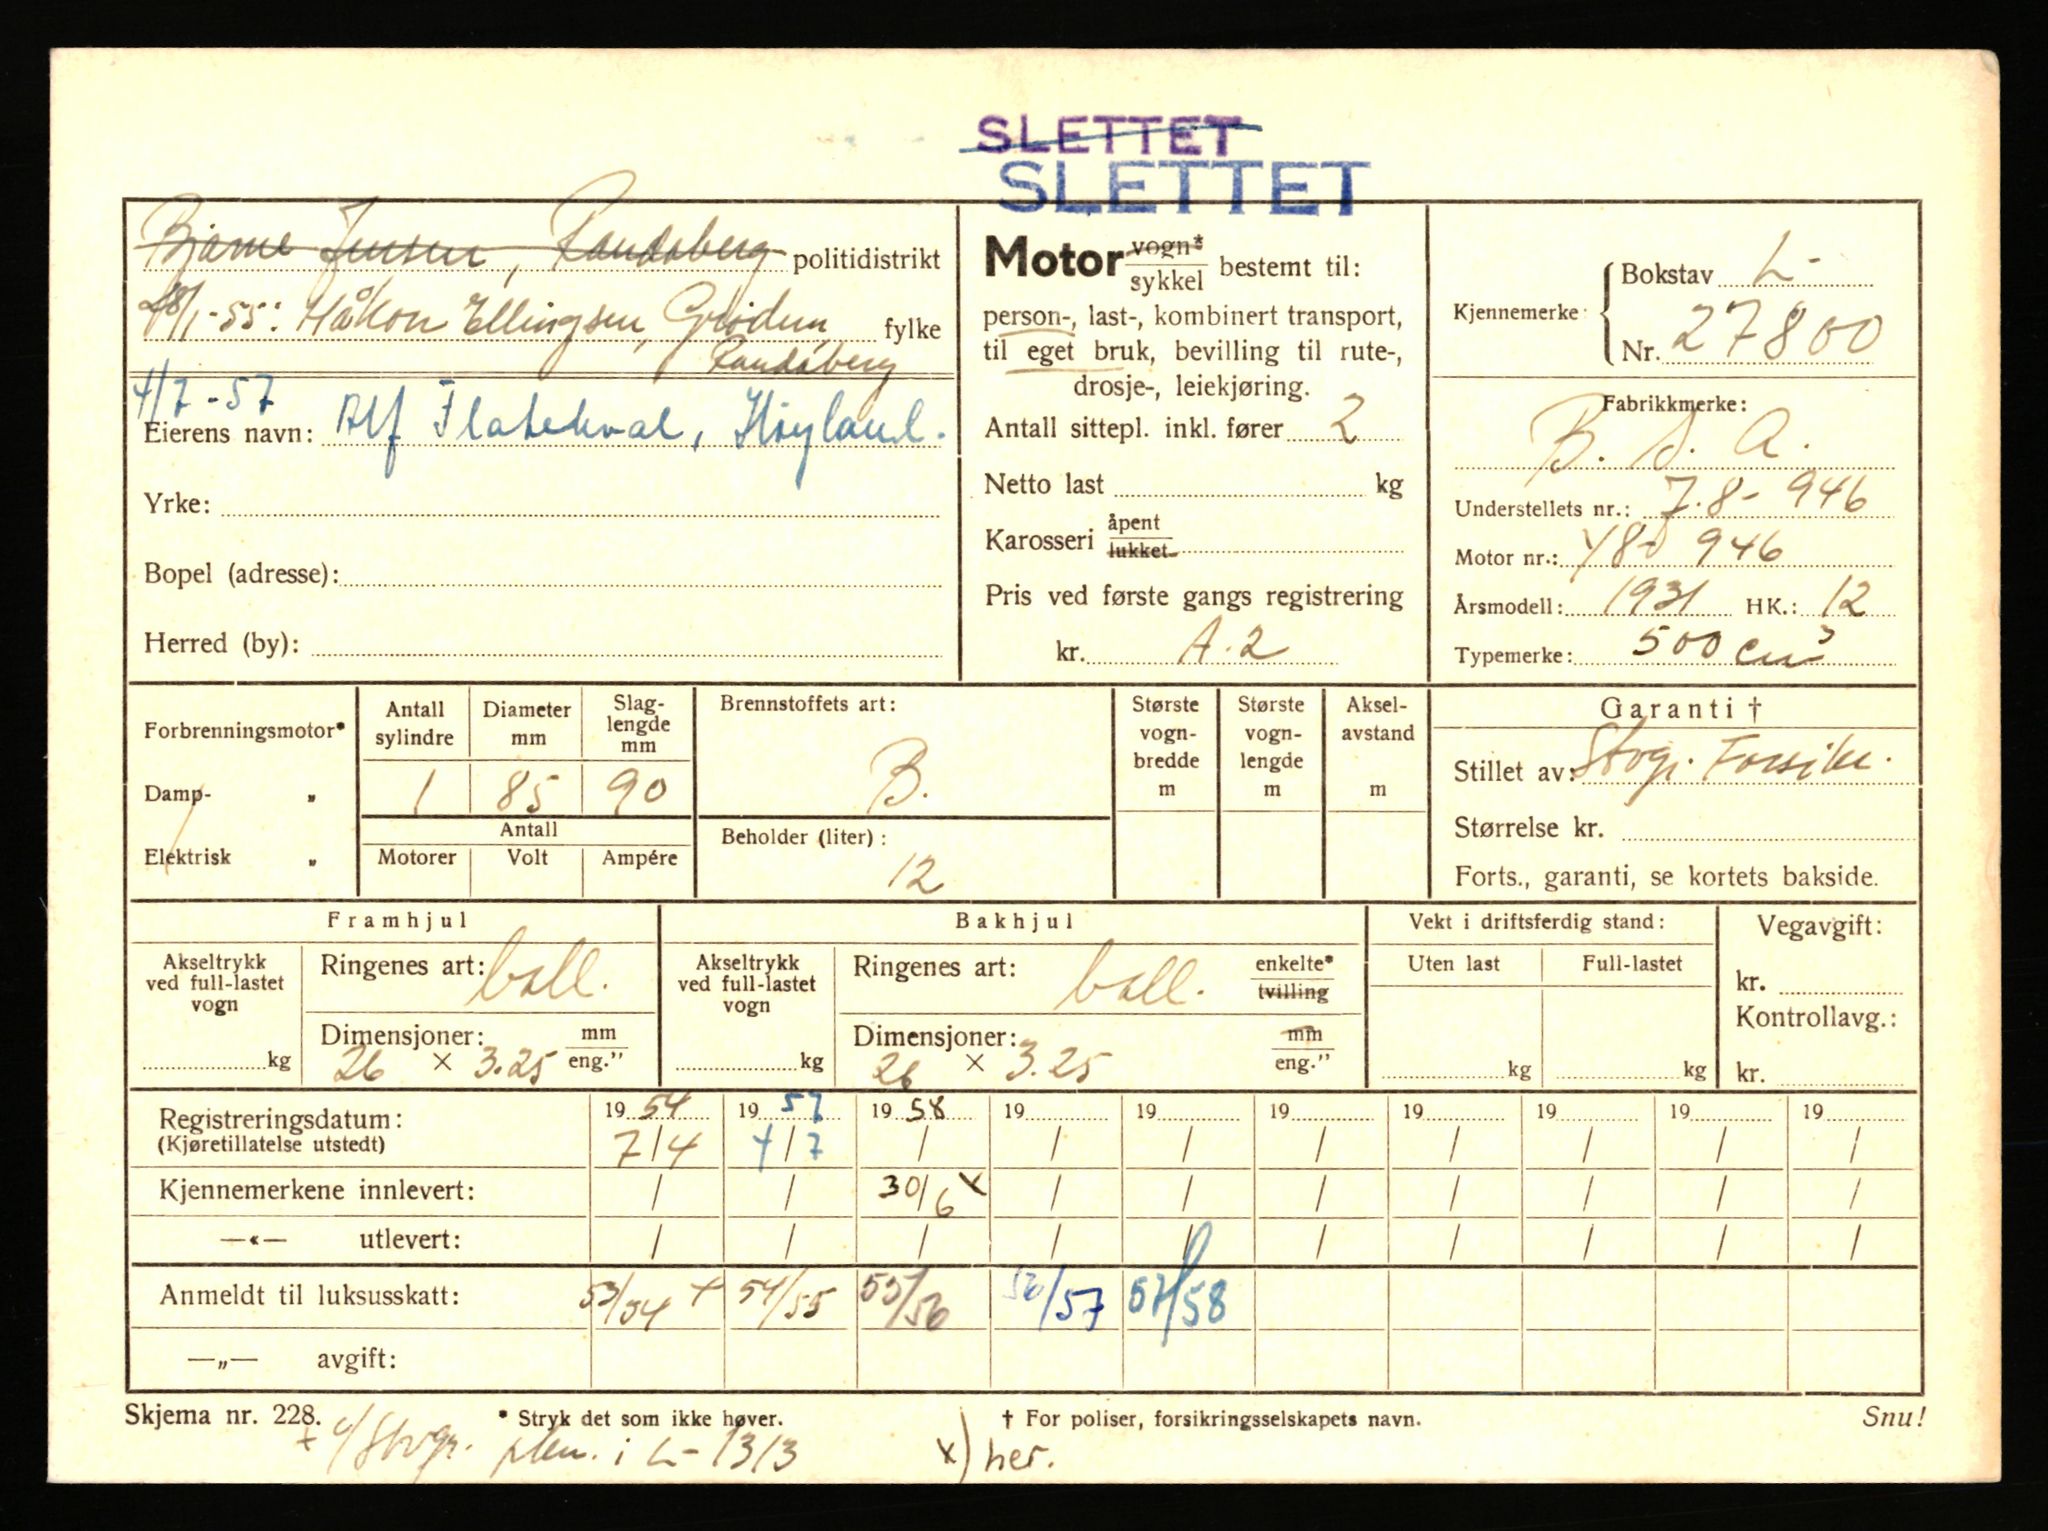 SLETTET
SLETTET
Bjarne Jensen, Randaberg politidistrikt
28/1-55: Håkon Ellingsen, Grødem, fylke
Randaberg
4/7-57
Eierens navn: Alf Flatekval, Høyland.
Yrke:
Bopel (adresse):
Herred (by):
Motor vogn* sykkel bestemt til:
person-, last-, kombinert transport,
til eget bruk, bevilling til rute-,
drosje-, leiekjøring.
Antall sittepl. inkl. fører 2
Netto last kg
Karosseri åpent lukket
Pris ved første gangs registrering
kr. A.2
Kjennemerke: Bokstav L-
Nr. 27800
Fabrikkmerke:
B. S. A.
Understellets nr.: 7.8-946
Motor nr.: 946
Årsmodell: 1931 HK.: 12
Typemerke: 500 cm³
Forbrenningsmotor*
Damp- „
Elektrisk „
Antall sylindre
Diameter mm
Slag-lengde mm
1 85 90
Antall
Motorer Volt Ampére
Brennstoffets art:
B.
Beholder (liter):
12
Største vogn-bredde m
Største vogn-lengde m
Aksel-avstand m
Garanti †
Stillet av: Stvgr.
Størrelse kr.
Forts., garanti, se kortets bakside.
Framhjul
Akseltrykk ved full-lastet vogn
kg
Ringenes art: ball.
Dimensjoner: mm
26 × 3.25 eng.”
Bakhjul
Akseltrykk ved full-lastet vogn
kg
Ringenes art: ball. enkelte* tvilling
Dimensjoner: mm
26 × 3.25 eng.”
Vekt i driftsferdig stand:
Uten last Full-lastet
kg kg
Vegavgift:
kr.
Kontrollavg.:
kr.
Registreringsdatum: 19 54 19 57 19 58 19 19 19 19 19 19 19
(Kjøretillatelse utstedt) 7/4 4/7 / / / / / / / /
Kjennemerkene innlevert: / / 30/6 x / / / / / / /
—«— utlevert: / / / / / / / / / /
Anmeldt til luksusskatt: 53/54 + 54/55 55/56 56/57 57/58
—„— avgift:
Skjema nr. 228. * Stryk det som ikke høver. † For poliser, forsikringsselskapets navn. Snu!
i L-1313 x) her.